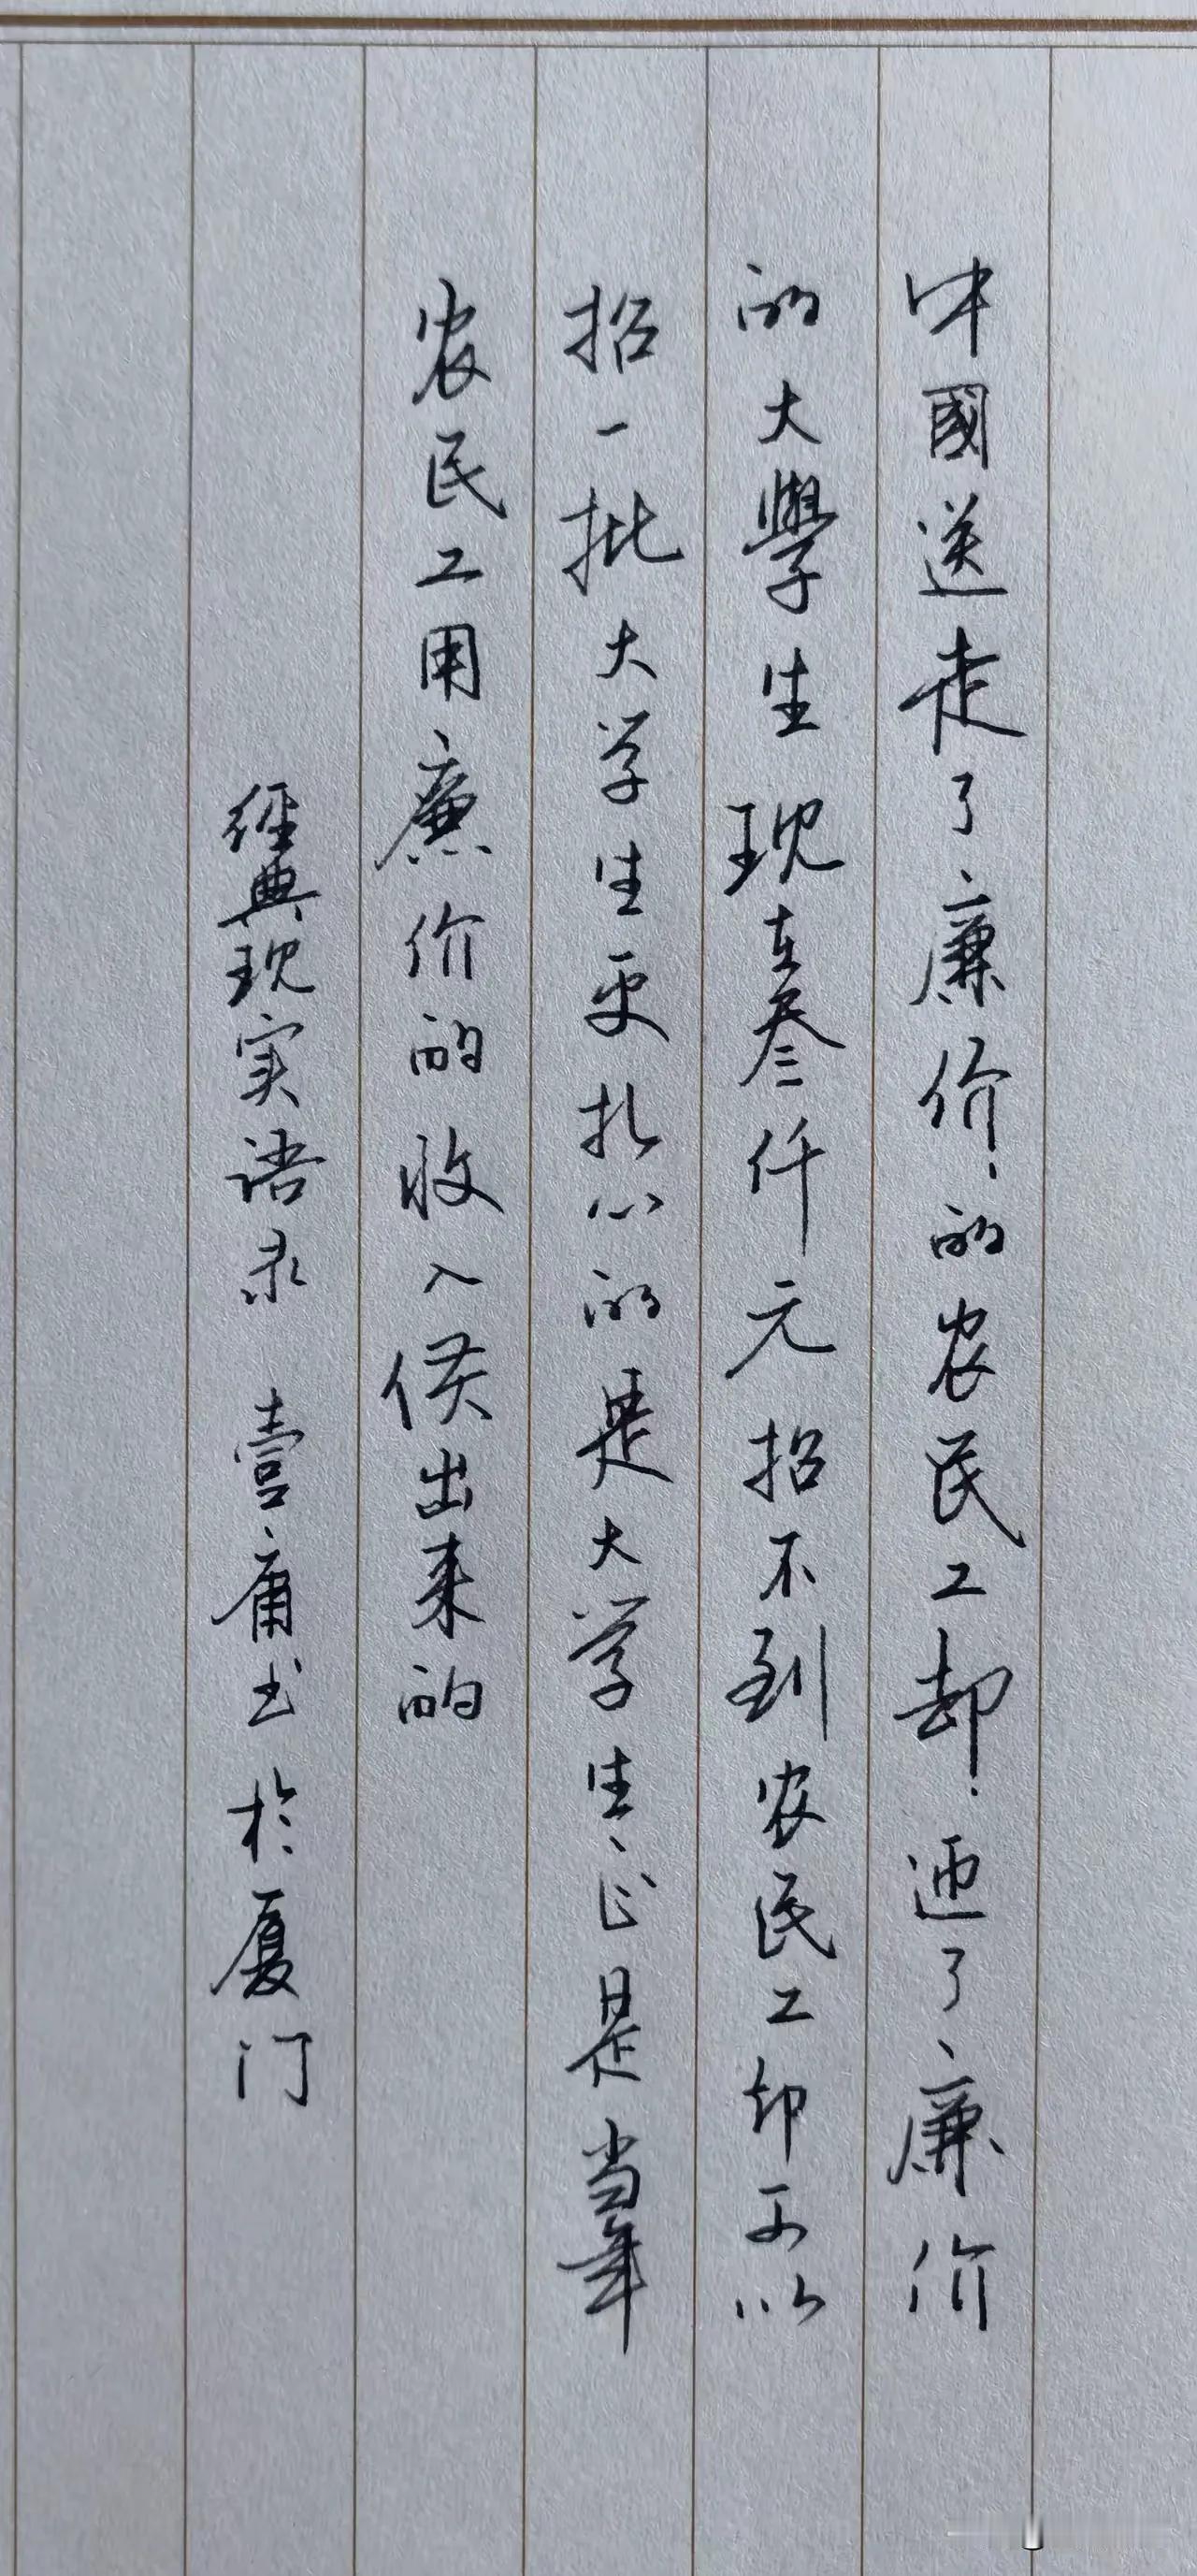 中國送走了廉价的农民工却迊了廉价
的大學生现在叁仟元招不到农民工却可以
招一批大学生更扎心的是大学生正是当年
农民工用廉价的收入供出来的
经典现实语录 壹庸书於厦门